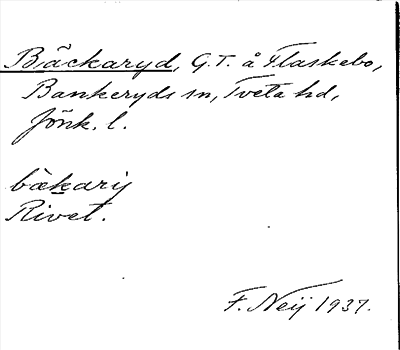 Bäckaryd, G.T. å Flaskebo,
Bankeryds sn, Tveta hd,
Jönk. l.
bäkarij
Rivet.
F. Neij 1937.